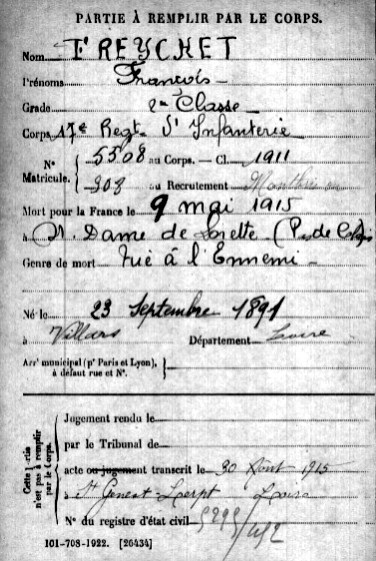 PARTIE À REMPLIR PAR LE CORPS.
Nom FREYCHET
Prénoms François
Grade 2me Classe
Corps 17e Regt d'Infanterie
N° Matricule. { 5508 au Corps. — Cl. 1911
908 au Recrutement
Mort pour la France le 9 mai 1915
à N. Dame de Lorette (P. de Calais)
Genre de mort Tué à l'Ennemi
Né le 23 Septembre 1891
à Villars Département Loire
Arr<sup>t</sup> municipal (p<sup>r</sup> Paris et Lyon), à défaut rue et N°.
Cette partie n'est pas à remplir par le Corps.
Jugement rendu le
par le Tribunal de
acte ou jugement transcrit le 30 Août 1915
à St Genest-Lerpt Loire
N° du registre d'état civil
101-708-1922. [26434]